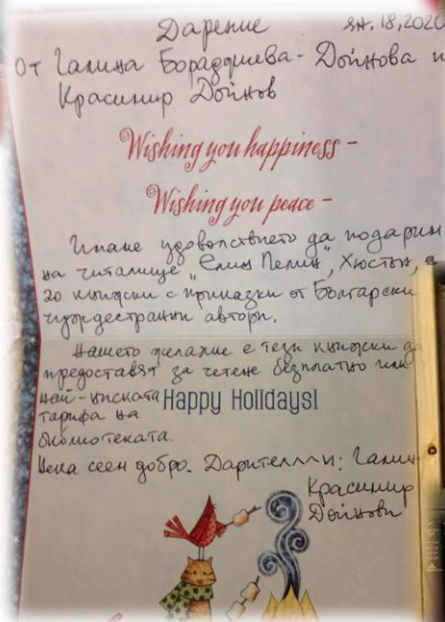 Дарение
ян. 18, 2020
от Галина Бораджиева - Дойнова и
Красимир Дойнов
Wishing you happiness -
Wishing you peace -
Имаме удоволствието да подарим
на читалище "Елин Пелин", Хюстън,
20 книжки с приказки от Български
чуждестранни автори.
Нашето желание е тези книжки да
предоставят за четене безплатно или
най-ниската
Happy Holidays!
тарифа на
библиотеката.
Нека сеем добро. Дарители: Галин
Красимир
Дойнови